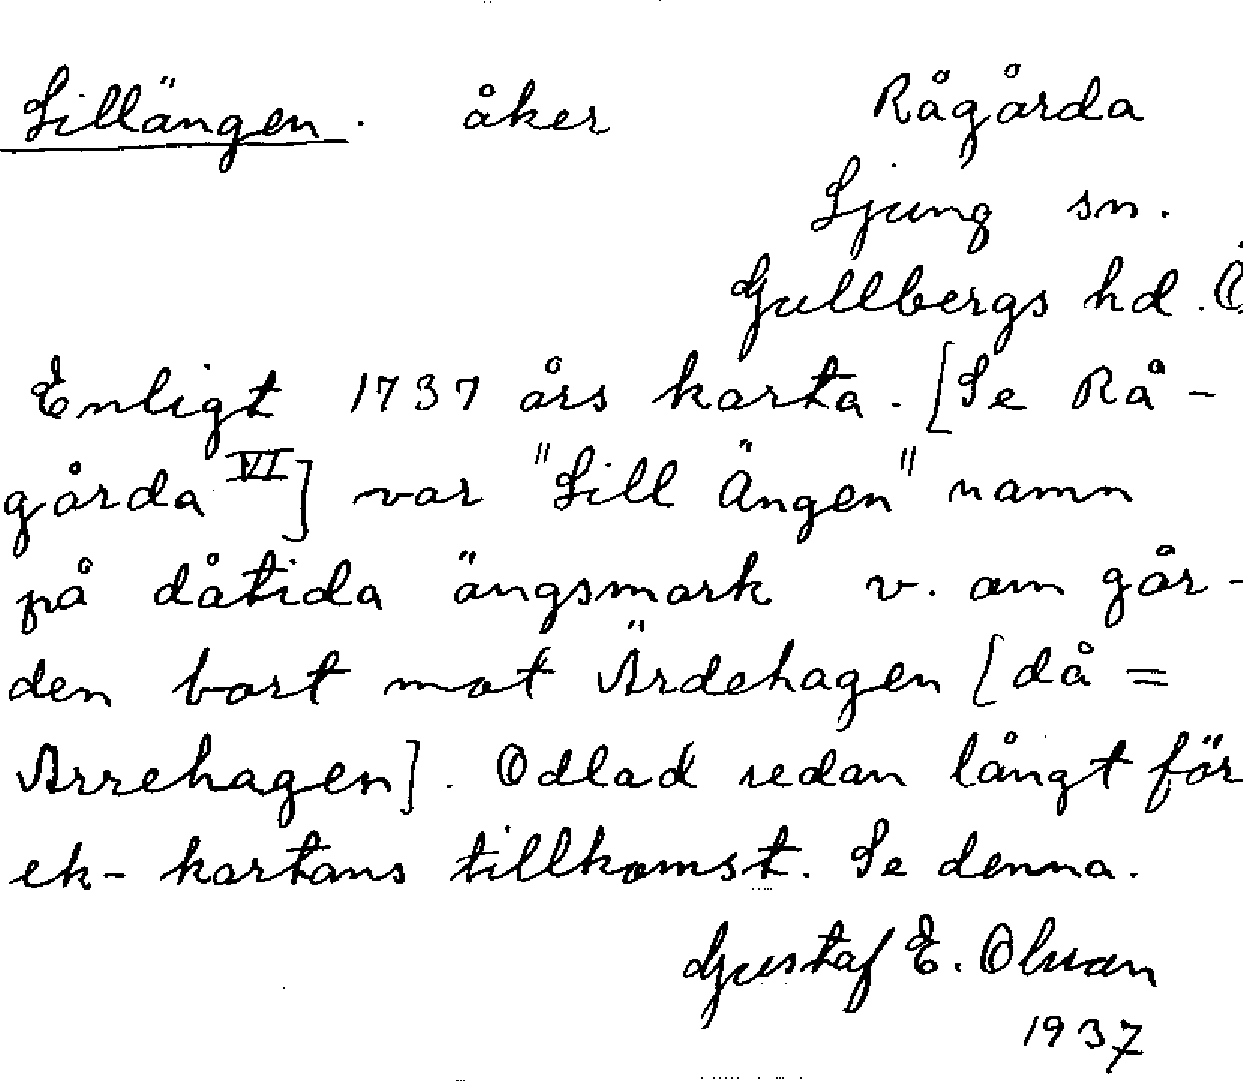 Sillängen. åker Rågårda
Ljung sn.
Gullbergs hd. Ö
Enligt 1737 års karta. [Se Rå-
gårda VI] var "Sill Ängen" namn
på dåtida ängsmark v. om går-
den bort mot Ärdehagen [då =
Arrehagen]. Odlad redan långt för
ek-kartans tillkomst. Se denna.
Gustaf E. Olson
1937